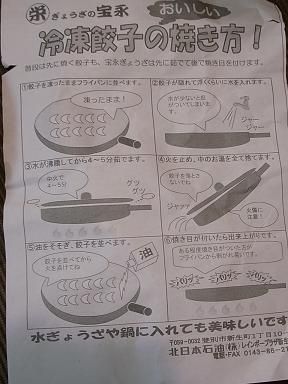 栄 ぎょうざの宝永
おいしい
冷凍餃子の焼き方!
普段は先に焼く餃子も、宝永ぎょうざは先に茹でて後で焼き目を付けます。
①餃子を凍ったままフライパンに並べます。
凍ったまま!
②餃子が隠れて浮くくらいに水を入れます。
水が少ないと皮がついてしまいます。
ジャー
ジャー
③水が沸騰してから4～5分茹でます。
中火で
4～5分
グツ
グツ
④火を止め、中のお湯を全て捨てます。
餃子を落とさないでね
ジャァァ
火傷に
注意!
⑤油をそそぎ、餃子を並べます。
餃子を並べてから火を点けてね
油
⑥焼き目が付いたら出来上がりです。
ある程度焼き目がついた方がフライパンから剥がれ易いです。
パリッ
パリッ
パリッ
水ぎょうざや鍋に入れても美味しいです
〒059-0032 登別市新生町1丁目10-
北日本石油(株)レインボープラザ新生
電話・FAX 0143-86-21